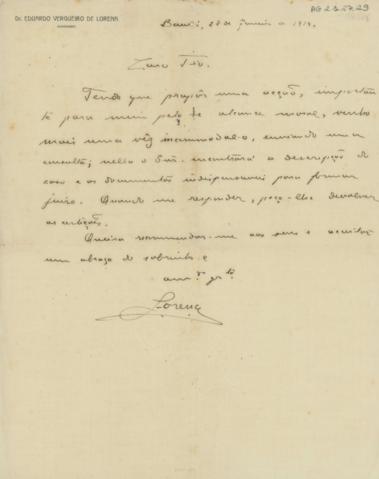 Dr. EDUARDO VERGUEIRO DE LORENA
AG 2.3.27.29
28 de janeiro de 1914.
Caro Tio.
Tendo que propôr uma acção, importan-
te para mim pelo seu alcance moral, venho
mais uma vêz incommodal-o, enviando uma
consulta; nella o Snr. encontrará a descripção do
caso e os documentos indispensaveis para formar
juizo. Quando me responder, peço-lhe devolver
as certidões.
Queira recommendar-me aos seus e acceitar
um abraço do sobrinho e
am.º gr.to
Lorena